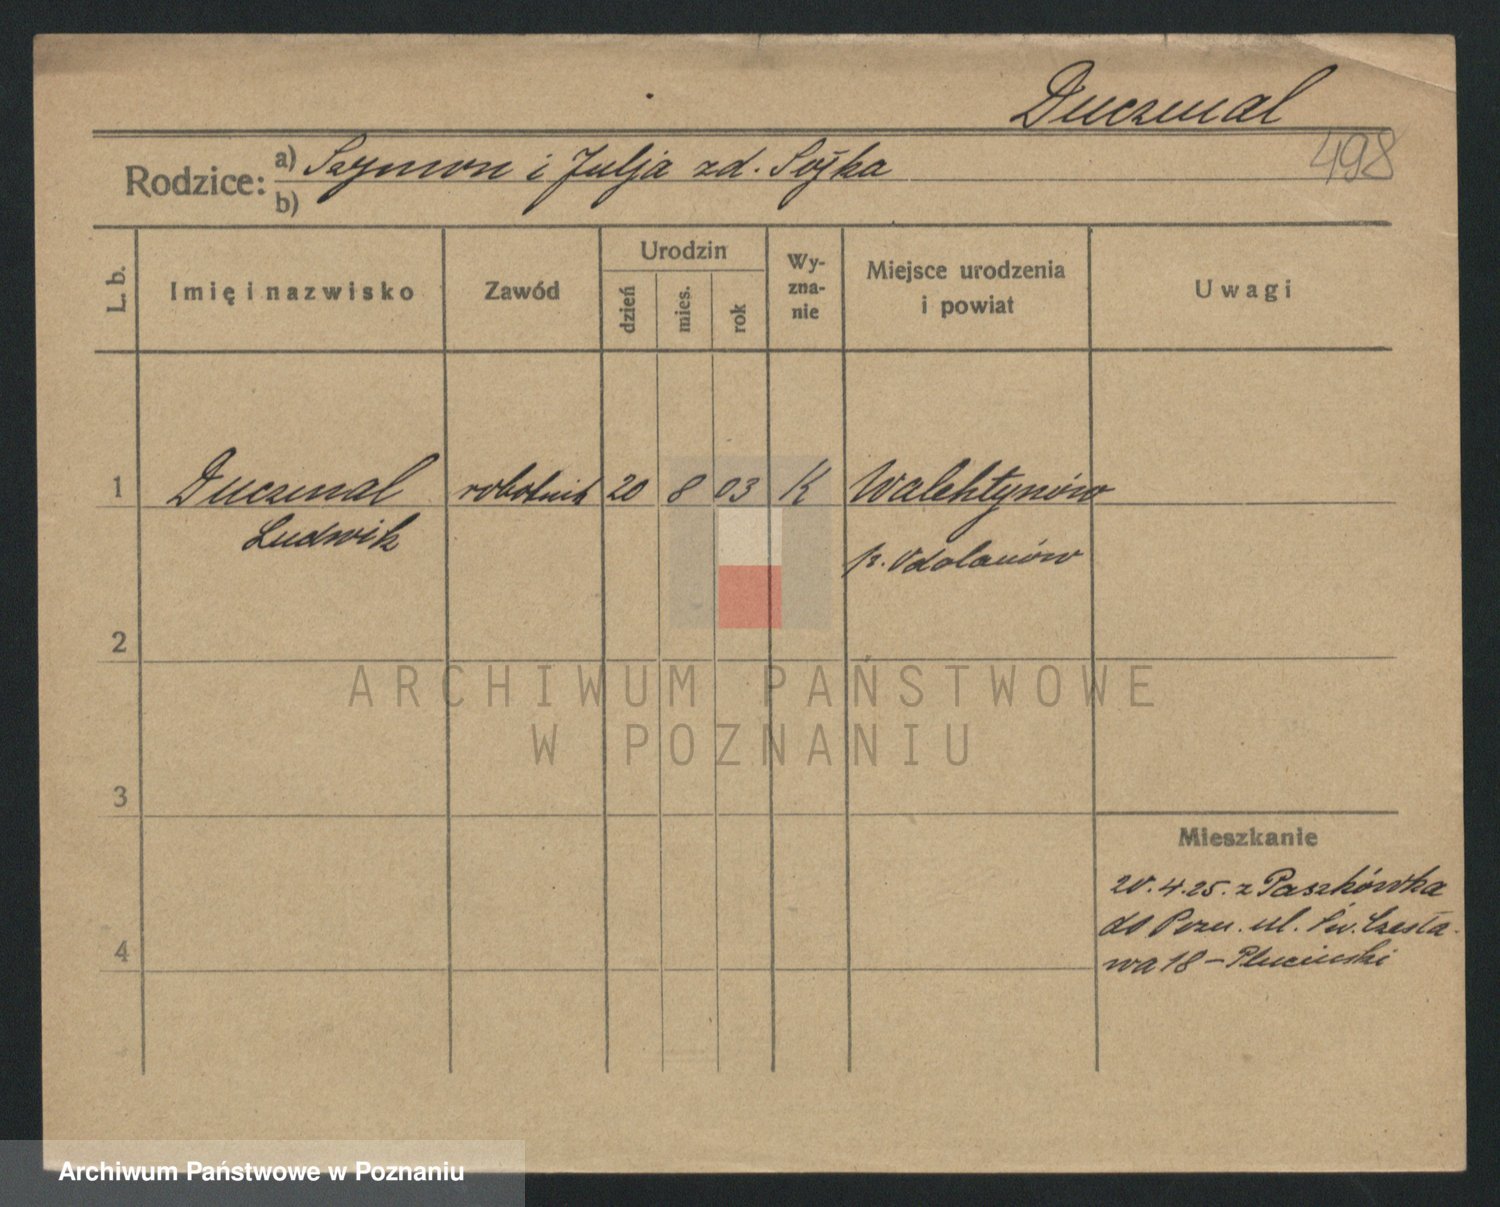 Duczmal
498
Rodzice: a) Szymon i Julja zd. Sójka
b)
L. b.
Imię i nazwisko
Zawód
Urodzin
dzień
mies.
rok
Wy-
zna-
nie
Miejsce urodzenia
i powiat
Uwagi
1 Duczmal robotnik 20 8 03 K Walentynów
Ludwik
p. Odolanów
2
ARCHIWUM PAŃSTWOWE
W POZNANIU
3
Mieszkanie
20.4.25. z Paszkówka
do Pozn. ul. Św. Czesła-
wa 18 – Pluciński
4
Archiwum Państwowe w Poznaniu